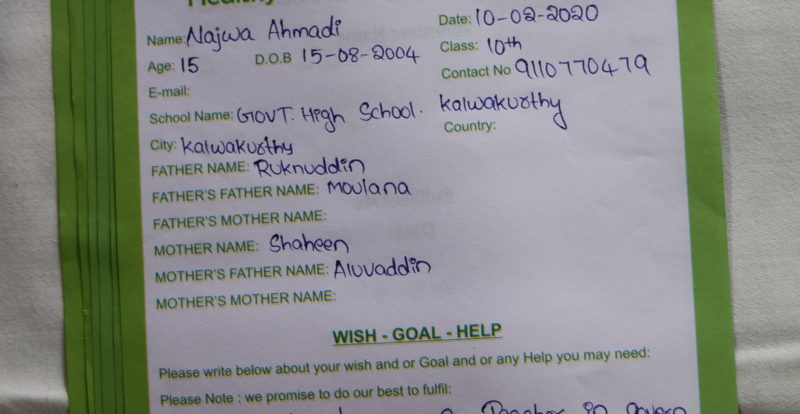 Healthy
Name: Najwa Ahmadi Date: 10-02-2020
Age: 15 D.O.B 15-08-2004 Class: 10th
E-mail: Contact No 9110770479
School Name: GOVT. High School. Kalwakurthy
City: Kalwakurthy Country:
FATHER NAME: Ruknuddin
FATHER'S FATHER NAME: Moulana
FATHER'S MOTHER NAME:
MOTHER NAME: Shaheen
MOTHER'S FATHER NAME: Aluvaddin
MOTHER'S MOTHER NAME:
WISH - GOAL - HELP
Please write below about your wish and or Goal and or any Help you may need:
Please Note : we promise to do our best to fulfil:
a Teacher in